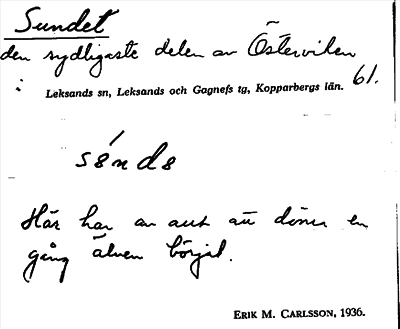 Sundet
den sydligaste delen av Österviken
61.
Leksands sn, Leksands och Gagnefs tg, Kopparbergs län.
sónds
Här har av att döma en
gång älven börjat.
ERIK M. CARLSSON, 1936.